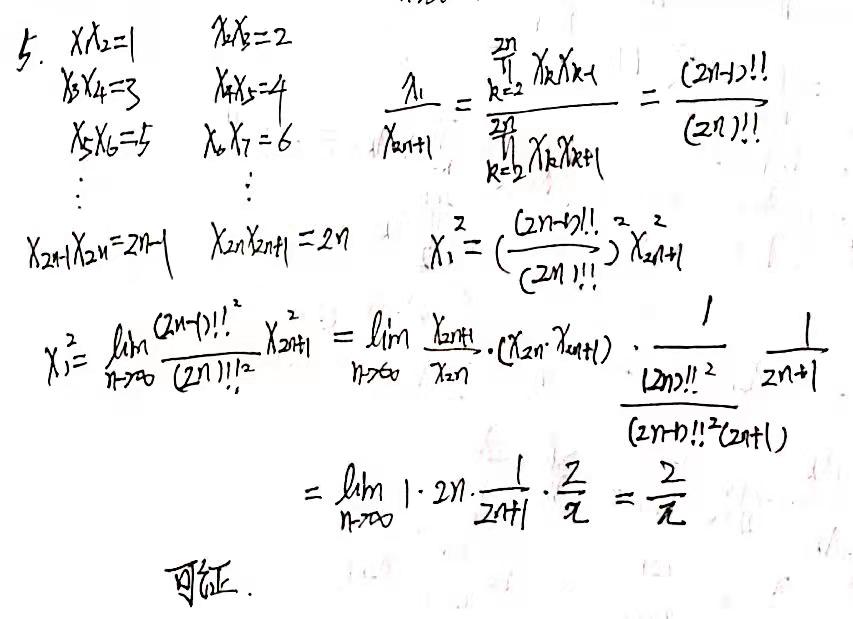 5. x₁x₂=1 x₂x₃=2
x₃x₄=3 x₄x₅=4
x₅x₆=5 x₆x₇=6
⋮ ⋮
x₂ₙ₋₁x₂ₙ=2n-1 x₂ₙx₂ₙ₊₁=2n
\frac{x_1}{x_{2n+1}} = \frac{\prod_{k=2}^{2n} x_k x_{k-1}}{\prod_{k=2}^{2n} x_k x_{k+1}} = \frac{(2n-1)!!}{(2n)!!}
x_1^2 = (\frac{(2n-1)!!}{(2n)!!})^2 x_{2n+1}^2
x_1^2 = \lim_{n→∞} \frac{(2n-1)!!^2}{(2n)!!^2} x_{2n+1}^2 = \lim_{n→∞} \frac{x_{2n+1}}{x_{2n}} · (x_{2n} · x_{2n+1}) · \frac{1}{\frac{(2n)!!^2}{(2n-1)!!^2(2n+1)}} \frac{1}{2n+1}
= \lim_{n→∞} 1 · 2n · \frac{1}{2n+1} · \frac{2}{π} = \frac{2}{π}
可证.